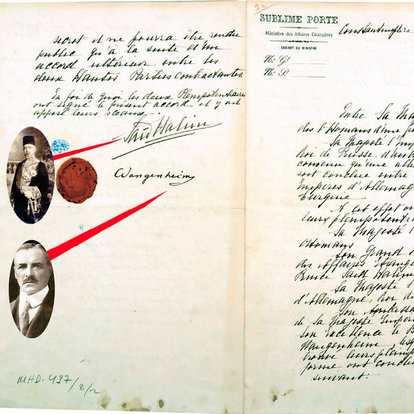 secret et ne pourra être rendu
public qu'à la suite d'un
accord ultérieur entre les
deux Hautes Parties contractantes
En foi de quoi les deux Plénipotentiaires
ont signé le présent accord et y ont
apposé leurs sceaux.
Saïd Halim
Wangenheim
MHD-437/8/2
SUBLIME PORTE
Ministère des Affaires Étrangères
CABINET DU MINISTRE
Nº G¹
Nº S¹
Constantinople
Entre Sa Ma
des Ottomans d'une pa
Sa Majesté l'Imp
Roi de Prusse d'autr
convenu qu'une all
soit conclue entre
Empires d'Allemag
Turquie.
A cet effet on
leurs plénipotenti
Sa Majesté l
Ottomans
Son Grand
des Affaires Étrangè
Prince Saïd Halim
Sa Majesté l'
d'Allemagne, Roi de
Son Ambassad
de Sa Majesté Impér
Son Excellence le
Wangenheim, lesq
trouvé leurs pleins
forme ont conclu
suivant: